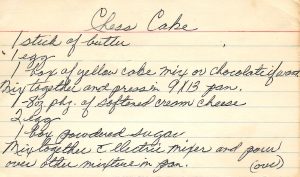 Chess Cake
1 stick of butter
1 egg
1 box of yellow cake mix or chocolate if
Mix together and press in 9X13 pan.
1-8oz pkg. of softened cream cheese
2 egg
1 box powdered sugar
Mix together & electric mixer and pour
over other mixture in pan.
(over)